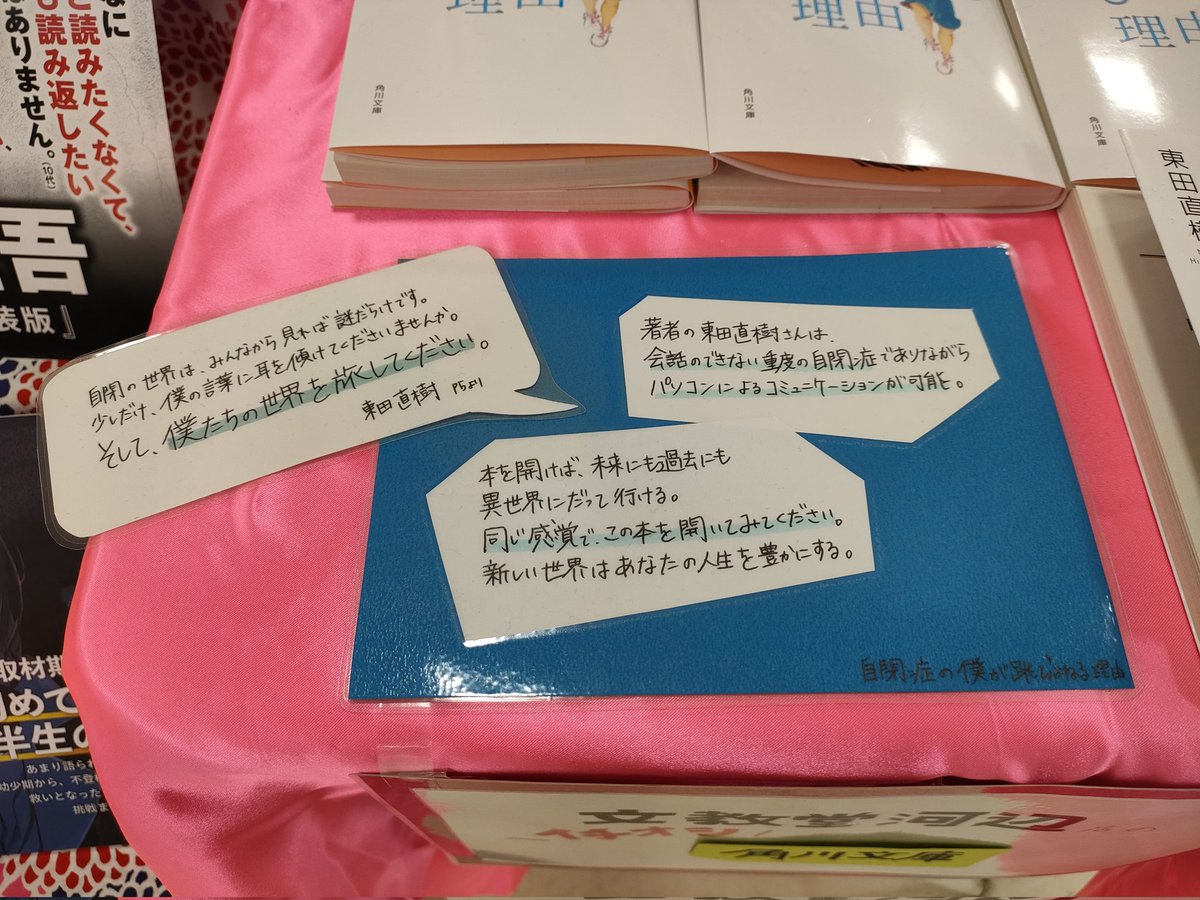 理由
角川文庫
理由
角川文庫
理由
角川文庫
東田直樹
なに
と読みたくなくて、
も読み返したい
はありません。(10代)
吾
装版』
自閉の世界は、みんなから見れば謎だらけです。
少しだけ、僕の言葉に耳を傾けてくださいませんか。
そして、僕たちの世界を旅してください。
東田直樹 P5より
著者の東田直樹さんは、
会話のできない重度の自閉症でありながら
パソコンによるコミュニケーションが可能。
本を開けば、未来にも過去にも
異世界にだって行ける。
同じ感覚で、この本を開いてみてください。
新しい世界はあなたの人生を豊かにする。
自閉症の僕が跳びはねる理由
取材期
初めて
半生の
あまり語られ
幼少期から、不登校
救いとなった
挑戦ま
文教堂河辺
イチオシ!
角川文庫